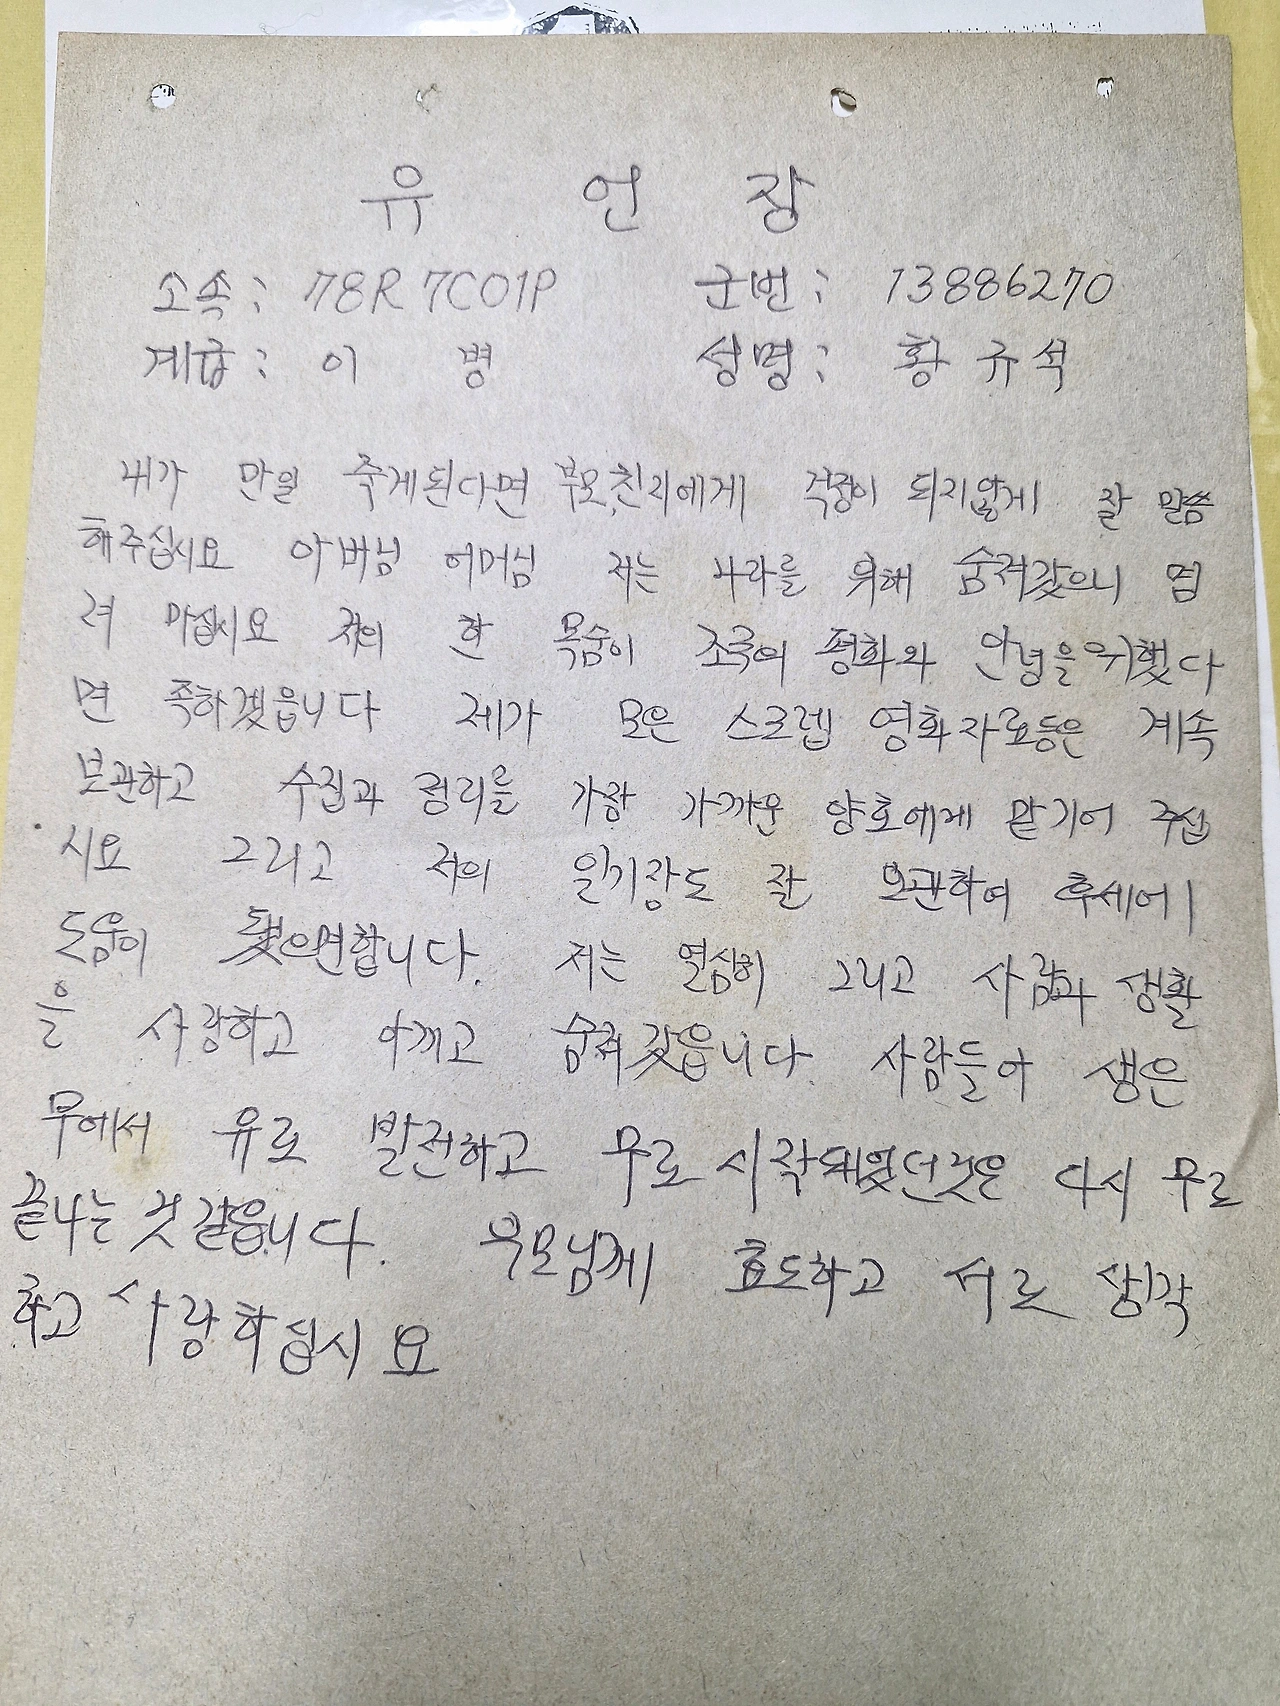 유 언 장
소속: 78R 7C01P 군번: 13886270
계급: 이 병 성명: 황규석
내가 만일 죽게된다면 부모,친지에게 걱정이 되지않게 잘 말씀
해주십시요 아버님 어머님 저는 나라를 위해 숨져갔으니 염
려 마십시요 저의 한 목숨이 조국의 평화와 안녕을위했다
면 족하겠읍니다 제가 모은 스크렙 영화자료등은 계속
보관하고 수집과 정리를 가장 가까운 양호에게 맡기어 주십
시요 그리고 저의 일기장도 잘 보관하여 후세에
도움이 됐으면합니다. 저는 열심히 그리고 사람과 생활
을 사랑하고 아끼고 숨져갔읍니다. 사람들아 생은
무에서 유로 발전하고 무로 시작되었던것은 다시 무로
끝나는 것 같읍니다. 부모님께 효도하고 서로 생각
하고 사랑하십시요